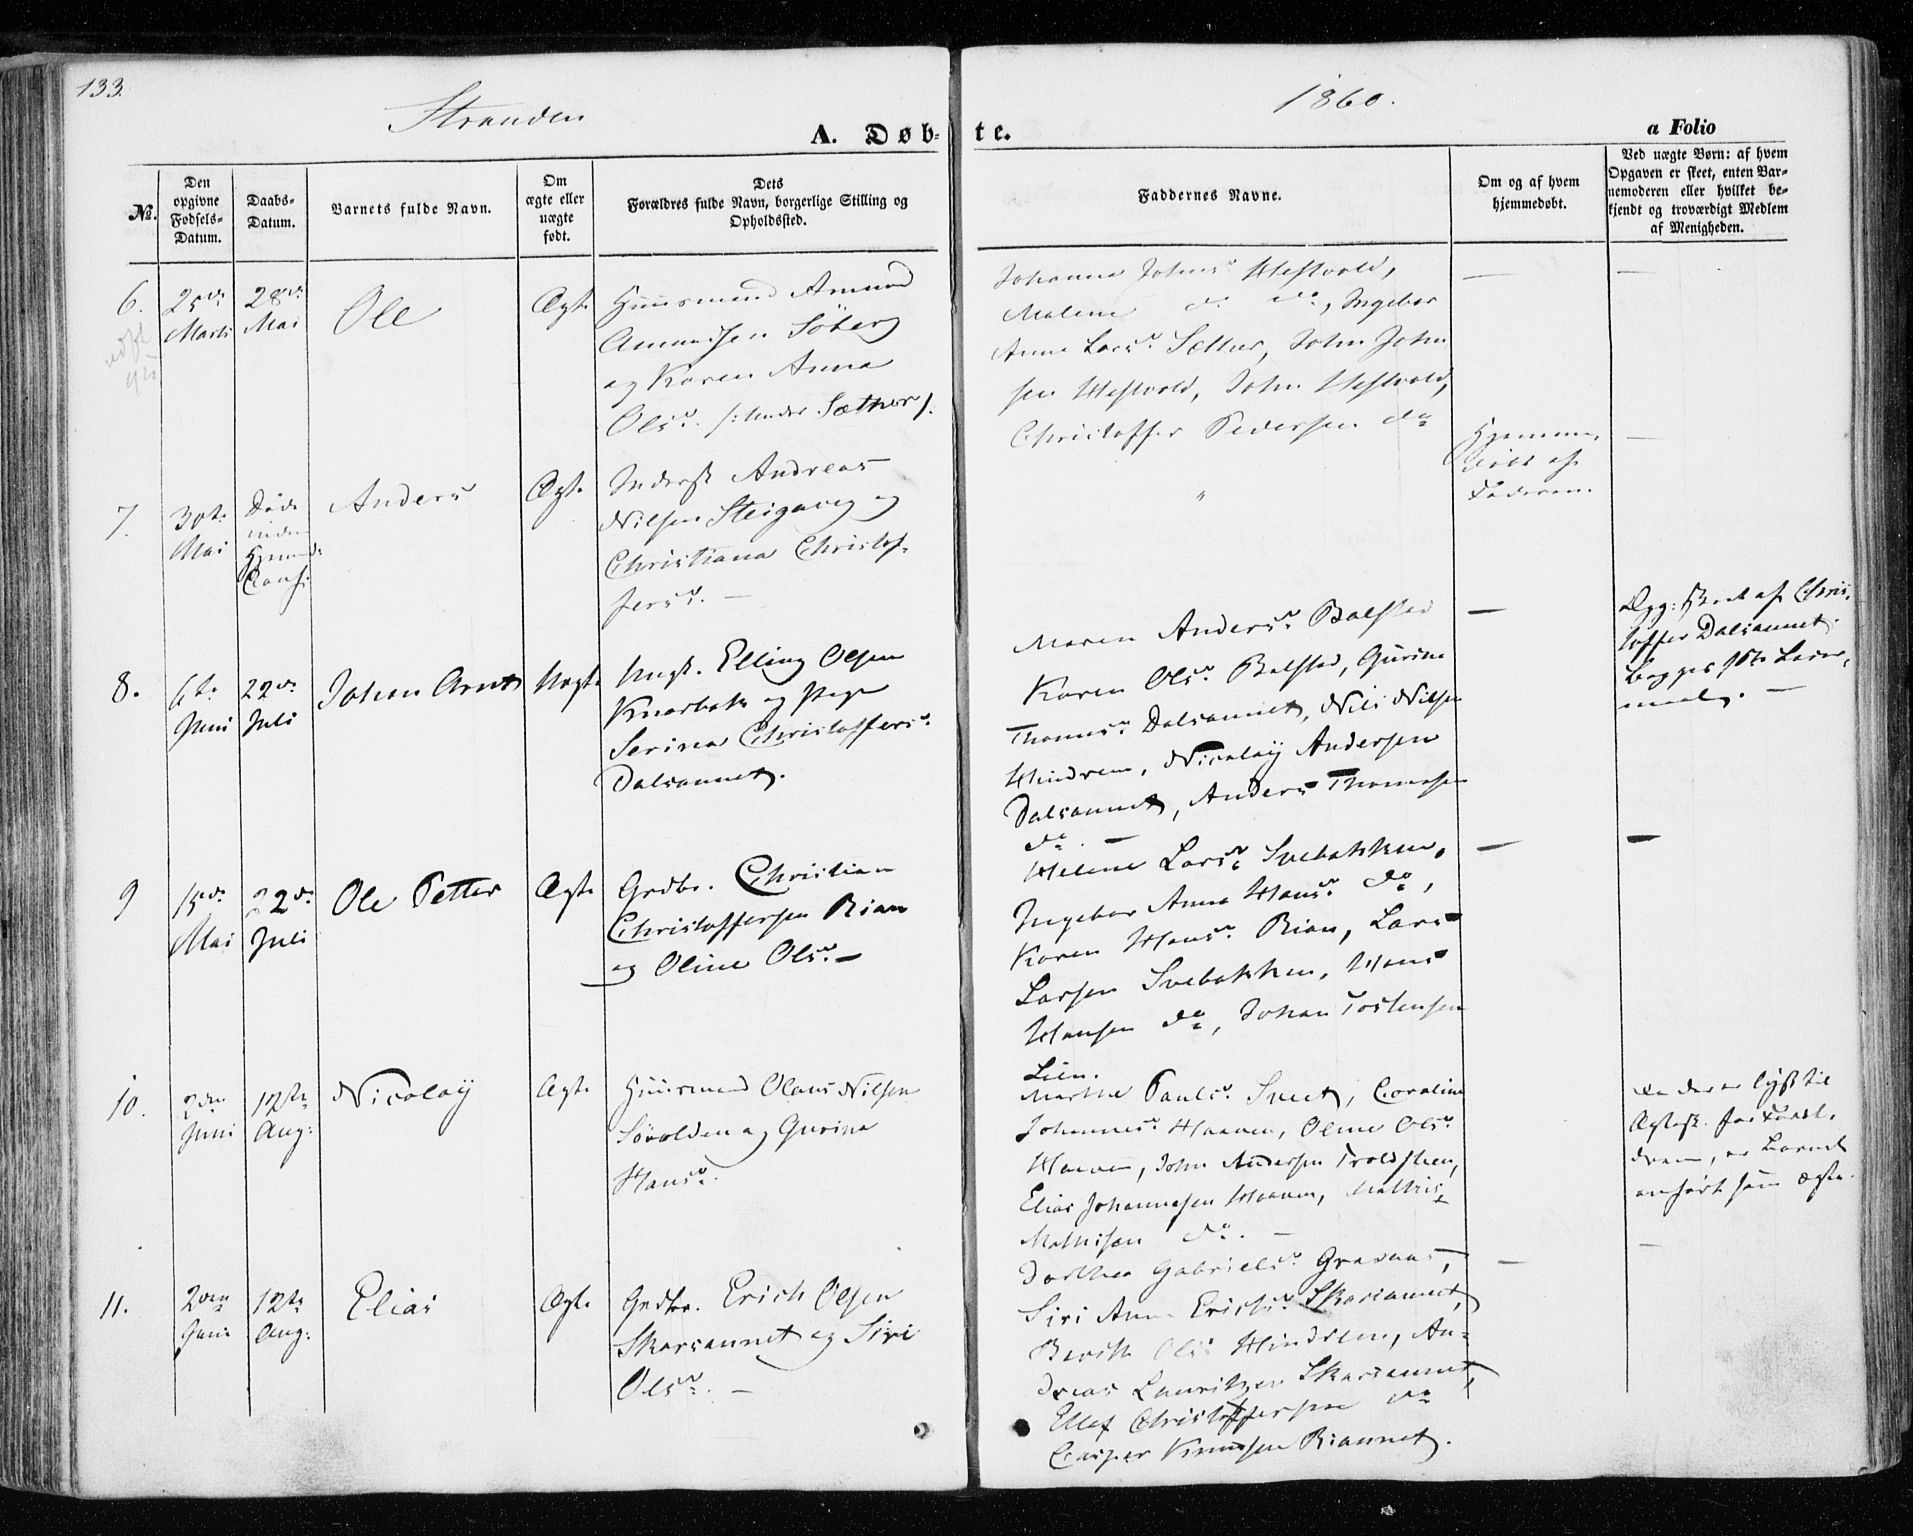 133.
Stranden
1860.
A. Døb-
te.
a Folio
No.
Den
opgivne
Fødsels-
Datum.
Daabs-
Datum.
Barnets fulde Navn.
Om
ægte eller
uægte
født.
Dets
Forældres fulde Navn, borgerlige Stilling og
Opholdssted.
Faddernes Navne.
Om og af hvem
hjemmedøbt.
Ved uægte Børn: af hvem
Opgaven er skeet, enten Bar-
nemoderen eller hvilket be-
kjendt og troværdigt Medlem
af Menigheden.
6.
25de
Marts
28de
Mai
Ole
Ægte
Huusmand Amund
Amundsen Söberg
og Karen Anna
Olsr. /: under Sæther /.
Johanna Johnsr Hestvold,
Malene do do, Ingebor
Anna Larsr. Sæther, John John
sen Hestvold, John Hestvold,
Christoffer Pedersen do
—
—
7.
30te
Mai
Döde
inden
Anders
Ægt.
Inderst Andreas
Nilsen Steigaveg og
Christiana Christof-
fersr. —
"
Hjemme-
döbt af
Faderen.
—
8.
6te
Juni
22de
Juli
Johan Arnt
Uægte
Ungk. Elling Olsen
og Pige
Serina Christoffersr.
Dalsaunet.
Maren Andersr. Balstad
Karen Olsr Balstad, Gurina
Thomasr. Dalsaunet, Nils Nilsen
Hindrem, Nicolay Andersen
Dalsaunet, Anders Thomasen
do. —
—
Opg: skeet af Chris-
toffer Dalsaunet.
Begges 1ste Leier-
maal. —
9
15de
Mai
22de
Juli
Ole Petter
Ægte
Grdbr. Christian
Christoffersen Rian
og Oline Olsr. —
Helene Larsr. Svebakken,
Ingebor Anna Hansr. do,
Karen Hansr. Rian, Lars
Larsen Svebakken, Hans
Hansen do, Johan Tostensen
Lien.
—
—
10.
2den
Juni
12te
Aug:
Nicolay
Ægte
Huusmand Olaus Nilsen
Sövolden og Gurina
Hansr.
Marthe Paulsr. Sveet, Caroline
Johannesr. Haaven, Oline Olsr.
Haaven, John Andersen Troldsteen,
Elias Johannesen Haaven, Mathis
Mathisen do. —
Da der er lyst til
Ægtesk. for Foræl-
drene, er Barnet
anfört som ægte.
11.
2den
Juni
12te
Aug:
Elias
Ægte
Grdbr. Erich Olsen
Skarsaunet og Siri
Olsr. —
Dorthea Gabrielsr Graanaas,
Siri Anna Erichsr. Skarsaunet,
Berith Olsr Hindrem, An-
dreas Lauritzen Skarsaunet,
Ellef Christoffersen do
Casper Knudsen Riannet.
—
—